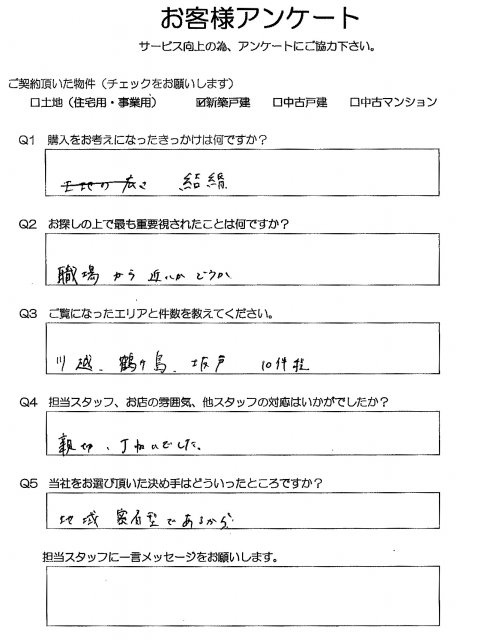 お客様アンケート
サービス向上の為、アンケートにご協力下さい。
ご契約頂いた物件（チェックをお願いします）
□土地（住宅用・事業用） ☑新築戸建 □中古戸建 □中古マンション
Q1 購入をお考えになったきっかけは何ですか？
土地の広さ 結絹
Q2 お探しの上で最も重要視されたことは何ですか？
職場から近いかどうか
Q3 ご覧になったエリアと件数を教えてください。
川越、鶴ヶ島、坂戸 10件程
Q4 担当スタッフ、お店の雰囲気、他スタッフの対応はいかがでしたか？
親切、丁ねいでした。
Q5 当社をお選び頂いた決め手はどういったところですか？
地域密着型であるから
担当スタッフに一言メッセージをお願いします。